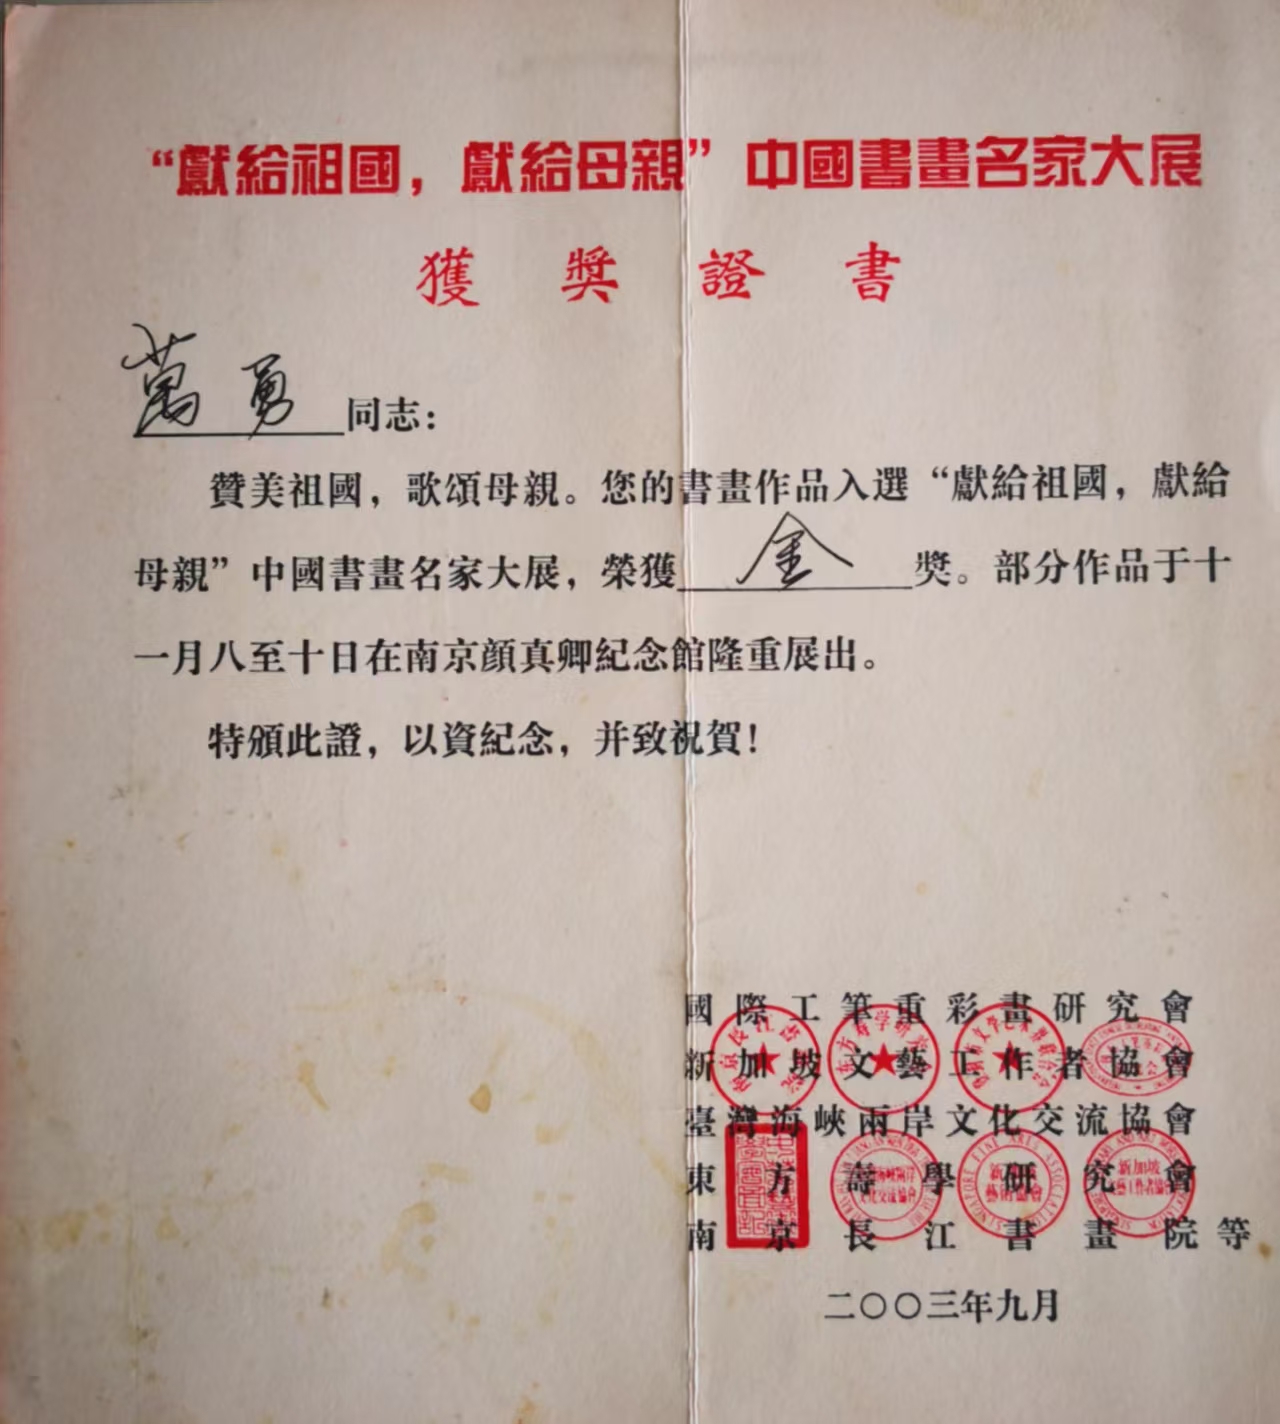 “獻給祖國，獻給母親”中國書畫名家大展
獲獎證書
萬勇同志：
贊美祖國，歌頌母親。您的書畫作品入選“獻給祖國，獻給
母親”中國書畫名家大展，榮獲金獎。部分作品于十
一月八至十日在南京顔真卿紀念館隆重展出。
特頒此證，以資紀念，并致祝賀！
國際工筆重彩畫研究會
新加坡文藝工作者協會
臺灣海峽兩岸文化交流協會
東方壽學研究會
南京長江書畫院等
二〇〇三年九月